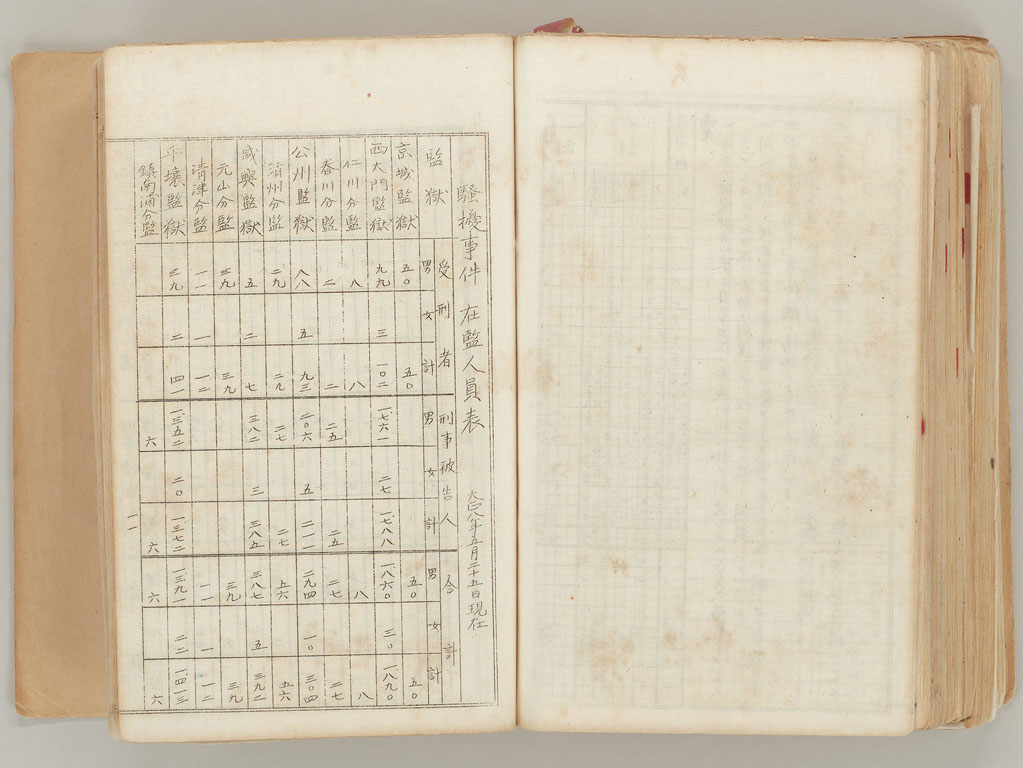 騷擾事件 在監人員表 大正八年五月二十五日現在
監獄 受刑者 刑事被告人 合計
男 女 計 男 女 計 男 女 計
京城監獄 五〇 五〇 五〇 五〇
西大門監獄 九九 三 一〇二 一、七六一 二七 一、七八八 一、八六〇 三〇 一、八九〇
仁川分監 八 八 八 八
春川分監 二 二 二五 二五 二七 二七
公州監獄 八八 五 九三 二〇六 五 二一一 二九四 一〇 三〇四
清州分監 二九 二九 二七 二七 五六 五六
咸興監獄 五 二 七 三八二 三 三八五 三八七 五 三九二
元山分監 三九 三九 三九 三九
清津分監 一一 一 一二 一一 一 一二
平壤監獄 三九 二 四一 一、三五二 二〇 一、三七二 一、三九一 二二 一、四一三
鎮南浦分監 六 六 六 六
一一